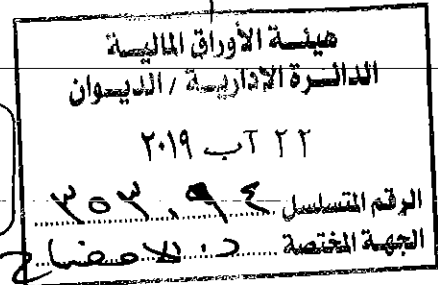 هيئة الأوراق المالية
الدائرة الادارية / الديوان
٢٢ آب ٢٠١٩
الرقم المتسلسل ٣٥٣٠٩٤
الجهة المختصة د. الافصاح